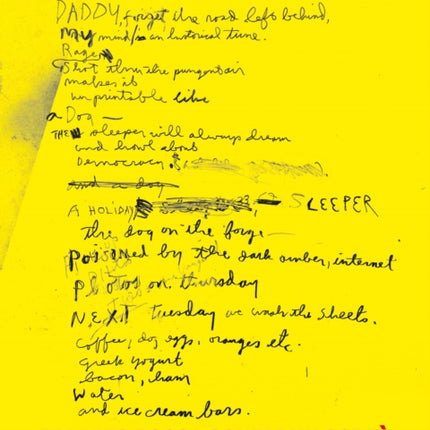 DADDY, forget the road left behind,
my mind is an historical tune.
Rage
Shot thru the pungent air
makes it
unprintable like
a Dog —
THE sleeper will always dream
and howl about
Democracy.
and a dog
A HOLIDAY, SLEEPER
the dog on the forge —
Poisoned by the dark amber, internet
photos on thursday
NEXT tuesday we wash the sheets.
coffee, dog eggs, oranges etc.
greek yogurt
bacon, ham
Water
and ice cream bars.